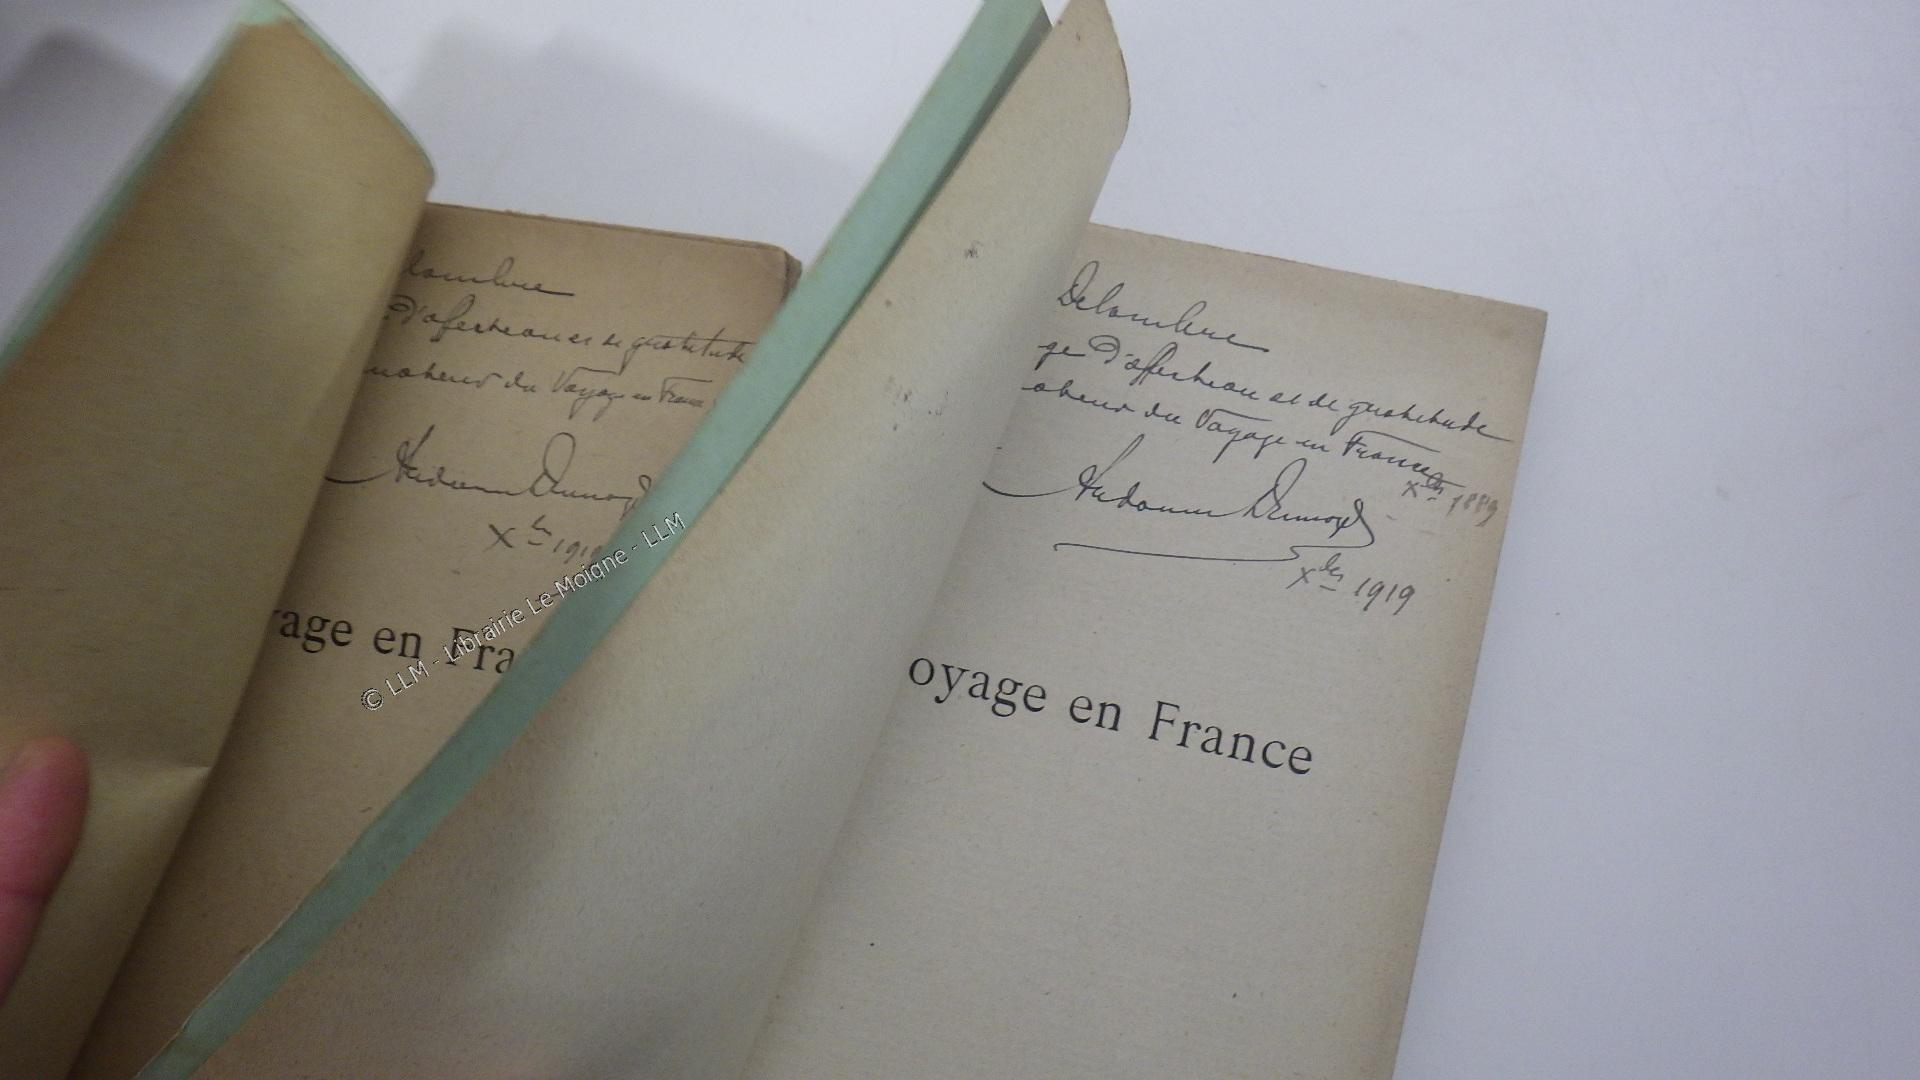 d'affection et de gratitude
du Voyage en France
Xbre 1919
yage en Fra
© LLM - Librairie Le Moigne - LLM
Delombre
ge d'affection et de gratitude
du Voyage en France
Xbre 1889
Ardouin Dumazet
Xbre 1919
oyage en France